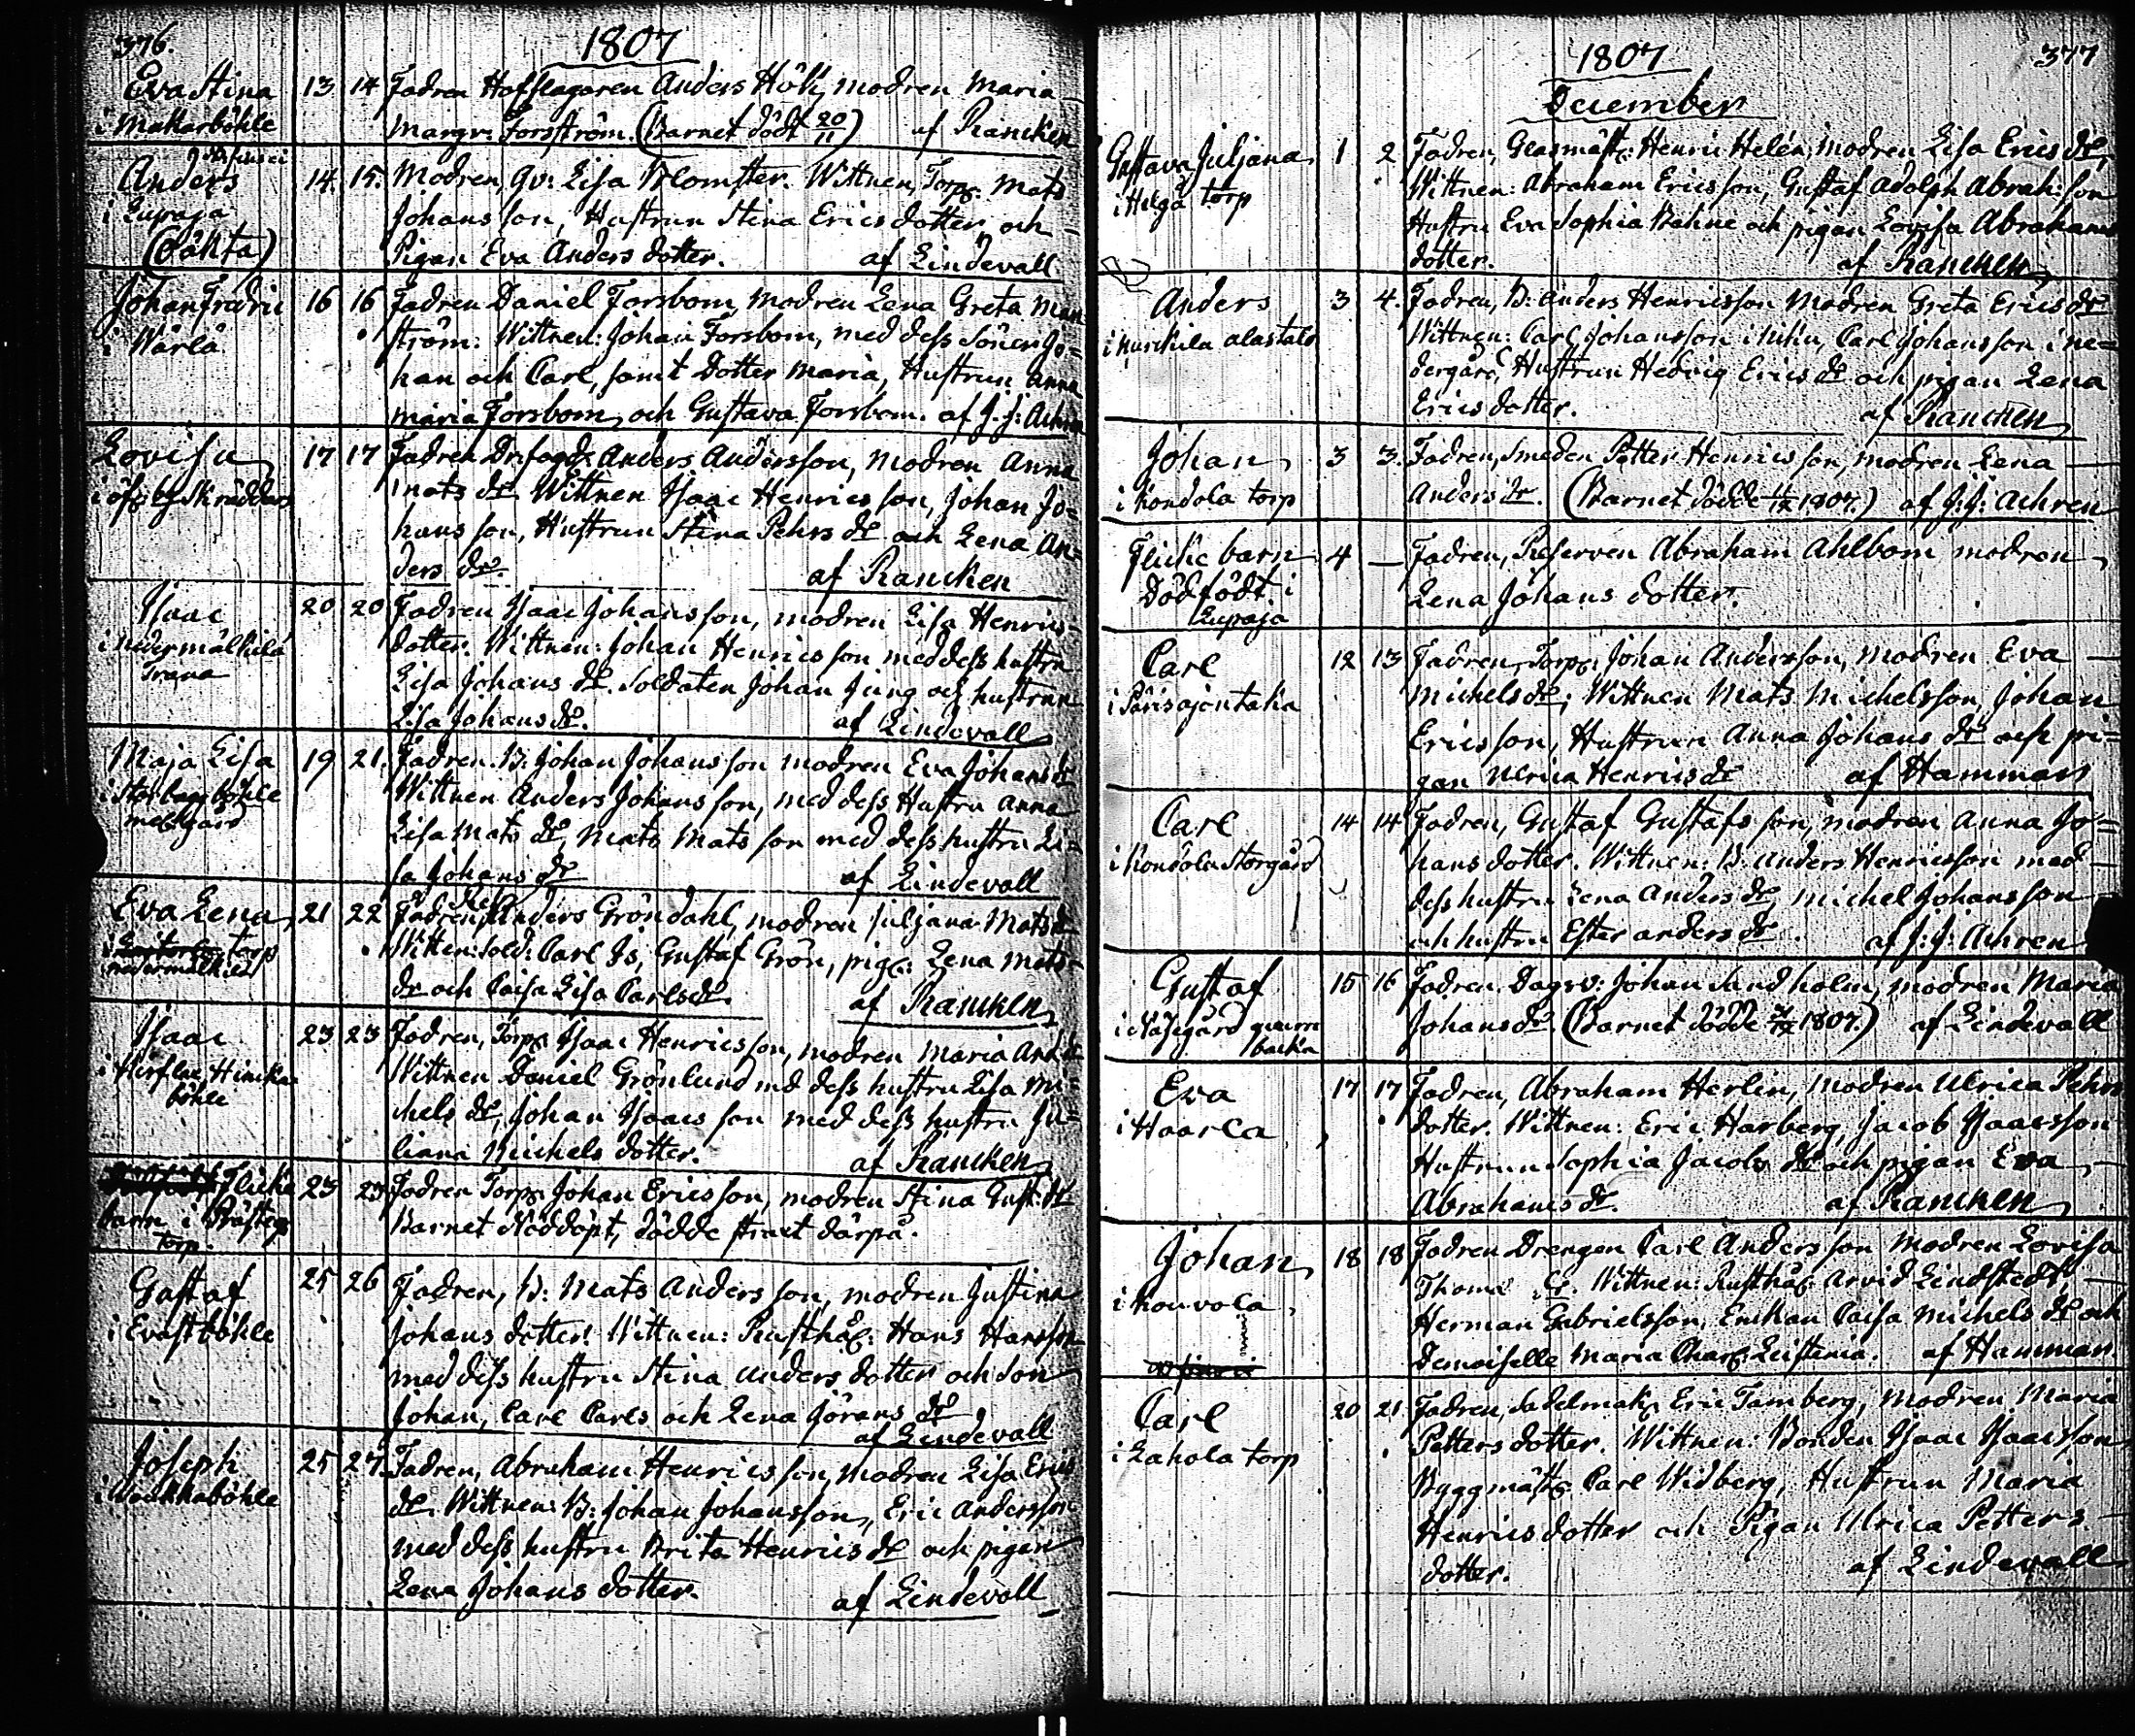 376.
1807
Eva Stina 13 14 Fadren Hofslagaren Anders Höök, modren Maria
i Mattarböhle Margr: Forsström. (Barnet dödt 20/11) af Rancken
Anders 14. 15. Modren, Qv: Lisa Blomster. Wittnen, Torp: Mats
i Lupaja Johansson, Hustrun Stina Ericsdotter, och
(Oäkta) Pigan Eva Andersdotter. af Lindevall
Johan Fredric 16 16 Fadren Daniel Forsbom, Modren Lena Greta
i Wärlä ström: Wittnen: Johan Forsbom, med dess Söner Jo=
han och Carl, samt Dotter Maria, Hustrun Anna
Maria Forsbom, och Gustava Forsbom. af J. J: Achren
Lovisa 17 17 Fadren Anders Andersson, Modren Anna
Mats dr Wittnen Isaac Henricsson, Johan Jo=
hansson, Hustrun Stina Pehrs dr och Lena An=
ders dr. af Rancken
Isaac 20 20 Fadren Isaac Johansson, modren Lisa Henrics
i Nedermälkilä dotter. Wittnen: Johan Henricsson med dess hustru
Trana Lisa Johans dr. Soldaten Johan Jung och hustrun
Lisa Johans dr. af Lindevall
Maja Lisa 19 21. Fadren. B: Johan Johansson modren Eva Johans dr
Wittnen Anders Johansson, med dess Hustru Anna
Lisa Mats dr, Mats Matsson med dess hustru Li=
sa Johans dr af Lindevall
Eva Lena 21 22 Fadren Anders Gröndahl, modren Juljana Mats dr
torp Wittnen: Sold: Carl Is, Gustaf Grön, pig: Lena Mats
nedermälkilä dr och Caisa Lisa Carlsdr. af Rancken
Isaac 23 23 Fadren, Torp: Isaac Henricsson, modren Maria And: dr
Wittnen Daniel Grönlund med dess hustru Lisa Mi=
böhle chels dr, Johan Isaacsson med dess hustru Ju=
liana Michels dotter. af Rancken
Flicke 23 23 Fadren Torp: Johan Ericsson, modren Stina Gust: dr
barn i Barnet Nöddöpt, dödde strax därpå.
torp.
Gustaf 25 26 Fadren, B: Mats Andersson, modren Justina
i Evastböhle Johans dotter. Wittnen: Rusthål: Hans Hansson
med dess hustru Stina Anders dotter och Son
Johan, Carl Carls och Lena Jörans dr
af Lindevall
Joseph 25 27. Fadren, Abraham Henricsson, Modren Lisa Erics
dr. Wittnen: B: Johan Johansson, Eric Andersson
med dess hustru Brita Henrics dr och pigan
Lena Johans dotter. af Lindevall
1807 377
December
Gustava Juljana 1 2 Fadren, Glasmäst: Henric Helén, modren Lisa Erics dr,
i Helgå torp Wittnen: Abraham Ericsson, Gustaf Adolph Abrah:son
Hustru Eva Sophia Bahne och pigan Lovisa Abrahams
dotter. af Rancken
Anders 3 4. Fadren, B: Anders Henricsson Modren Greta Erics dr
i Kurkila alastalo Wittnen: Carl Johansson i Niku, Carl Johansson i ne=
dergård, Hustrun Hedvig Erics dr och pigan Lena
Ericsdotter. af Rancken
Johan 3 3. Fadren, Smeden Petter Henricsson, modren Lena
i Kondola torp Anders dr. (Barnet dödde 1807.) af J: J: Achren
Flicke barn 4 — Fadren, Reserven Abraham Ahlbom modren
Dödfödt i Lena Johans dotter.
Lupaja
Carl 12 13 Fadren, Torp: Johan Andersson, modren Eva
Michels dr, Wittnen Mats Michelsson, Johan
Ericsson, Hustrun Anna Johans dr och pi=
gan Ulrica Henricsdr af Hammar
Carl 14 14 Fadren, Gustaf Gustafsson, modren Anna Jo=
i Kondola Storgård hans dotter. Wittnen: B: Anders Henricsson med
dess hustru Lena Anders dr, Michel Johansson
och hustru Ester Anders dr. af J: J: Achren
Gustaf 15 16 Fadren. Dagsv: Johan Sandholm, modren Maria
Johans dr (Barnet dödde 1807.) af Lindevall
backa
Eva 17 17 Fadren, Abraham Herlin, Modren Ulrica Pehrs
i Haarla dotter. Wittnen: Eric Harberg, Jacob Isaacsson
Hustrun Sophia Jacobs dr och pigan Eva
Abrahams dr. af Rancken
Johan 18 18 Fadren Drengen Carl Andersson Modren Lovisa
i Kouvola Thomæ dr. Wittnen: Rusthål: Arvid Lindstedt
Herman Gabrielsson, Enkan Caisa Michels dr och
Demoiselle Maria Charl: Leistenia. af Hammar
Carl 20 21. Fadren, Sadelmak: Eric Tamberg, modren Maria
i Lahola torp Pettersdotter. Wittnen: Bonden Isaac Isaacsson
Byggmäst: Carl Widberg, Hustrun Maria
Henricsdotter och Pigan Ulrica Petters
dotter. af Lindevall